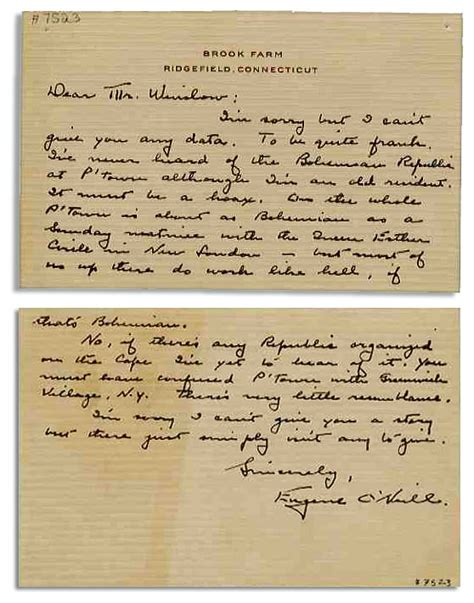 #7523
BROOK FARM
RIDGEFIELD, CONNECTICUT
Dear Mr. Winslow:
I'm sorry but I can't
give you any data. To be quite frank
I've never heard of the Bohemian Republic
at P'Town although I'm an old resident.
It must be a hoax. On the whole
P'Town is about as Bohemian as a
Sunday matinee with the Queen Esther
Circle in New London – but most of
us up there do work like hell, if
that's Bohemian.
No, if there's any Republic organized
on the Cape I've yet to hear of it. You
must have confused P'Town with Greenwich
Village, N.Y. There's very little resemblance.
I'm sorry I can't give you a story
but there just simply isn't any to give.
Sincerely,
Eugene O'Neill.
#7523